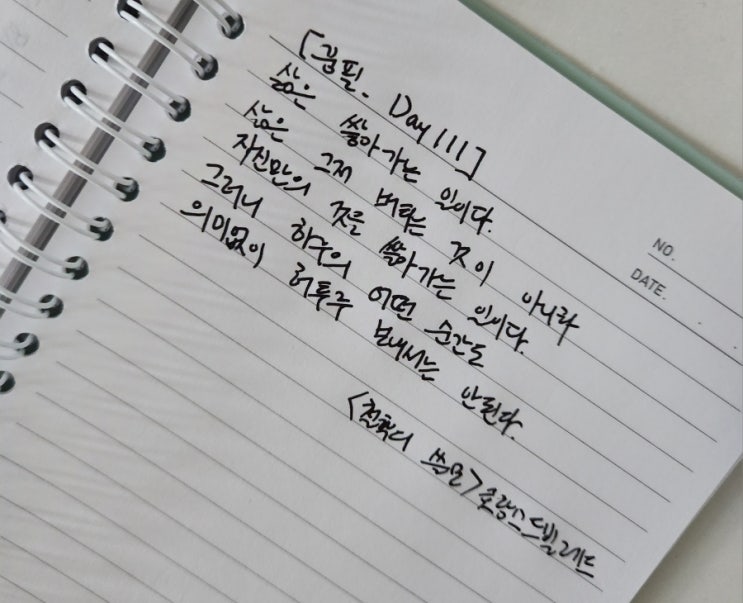 [꿈필. Day 111]
삶은 쌓아가는 일이다.
삶은 그저 버티는 것이 아니라
자신만의 것을 쌓아가는 일이다.
그러니 하루의 어떤 순간도
의미없이 허투루 보내서는 안된다.
<철학의 쓸모> 로랑스 드빌레르
NO.
DATE.